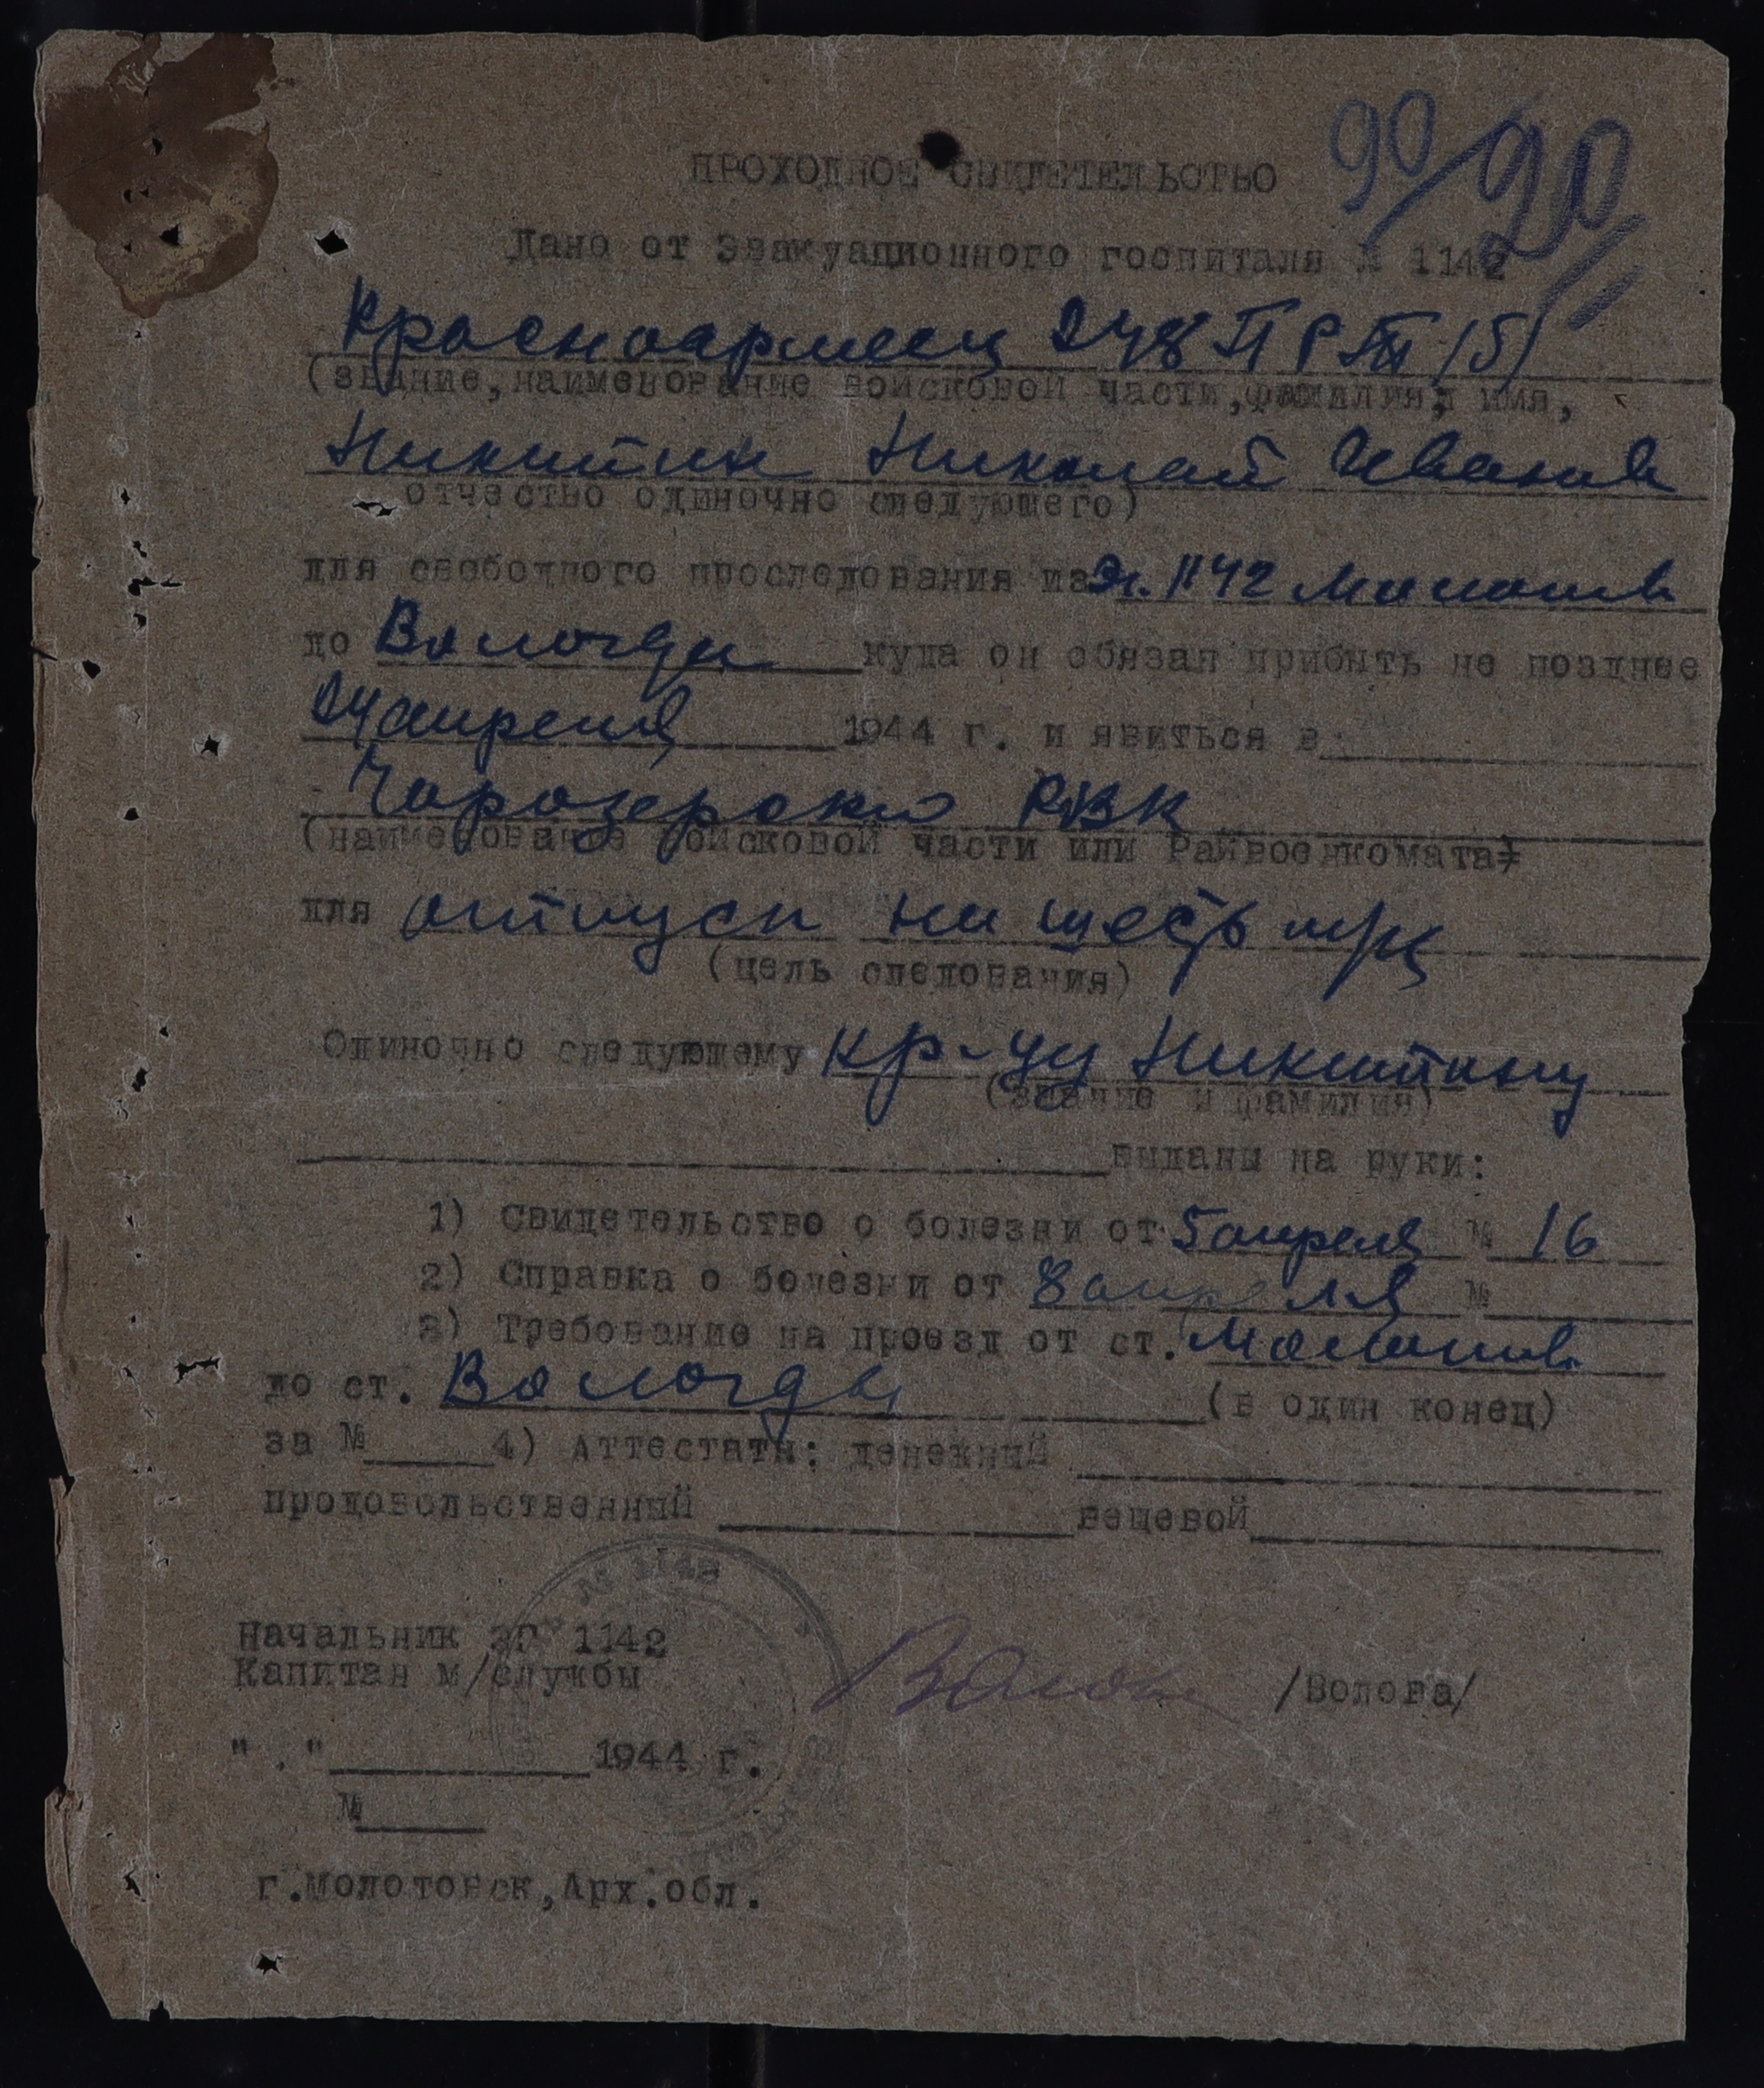 90/90
ПРОХОДНОЕ СВИДЕТЕЛЬСТВО
Дано от Эвакуационного госпиталя № 1142
Красноармеец 248 П Р /5/
(звание, наименование войсковой части, фамилия, имя,
Никитин Николай Иванов
отчество одиночно следующего)
для свободного проследования из Эг. 1142 Молотов
до Вологды куда он обязан прибыть не позднее
24 апреля 1944 г. и явиться в
Чарозерский РВК
(наименование войсковой части или Райвоенкомата)
для отпуск на шесть м/ц
(цель следования)
Одиночно следующему кр-цу Никитину
(звание и фамилия)
выданы на руки:
1) Свидетельство о болезни от 5 апреля № 16
2) Справка о болезни от 8 апреля №
3) Требование на проезд от ст. Молотов
до ст. Вологды (в один конец)
за № 4) Аттестаты: денежный
продовольственный вещевой
№ 1142
Начальник ЭГ 1142
Капитан м/службы /Волова/
" . " 1944 г.
№
г.Молотовск,Арх.обл.